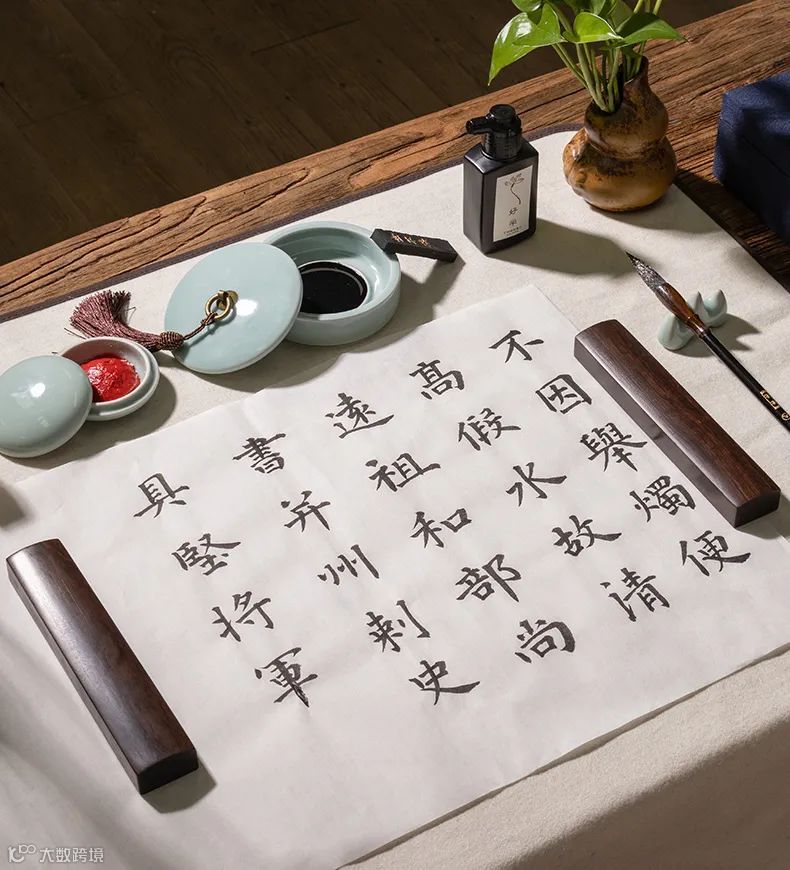 不因舉燭便
高假水故清
遠祖和部尚
書并州刺史
具堅將軍
大数跨境